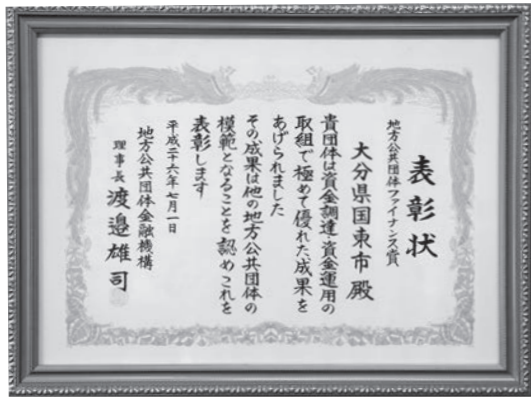 表彰状
地方公共団体ファイナンス賞
大分県国東市殿
貴団体は資金調達・資金運用の
取組で極めて優れた成果を
あげられました
その成果は他の地方公共団体の
模範となることを認めこれを
表彰します
平成二十六年七月一日
地方公共団体金融機構
理事長 渡邉雄司